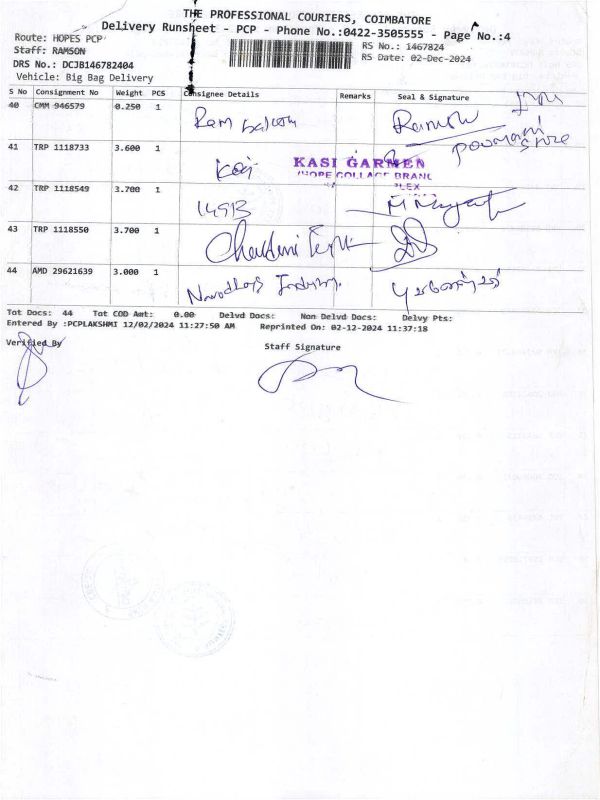 THE PROFESSIONAL COURIERS, COIMBATORE
Delivery Runsheet - PCP - Phone No.:0422-3505555 - Page No.:4
Route: HOPES PCP
RS No.: 1467824
Staff: RAMSON
RS Date: 02-Dec-2024
DRS No.: DCJB146782404
Vehicle: Big Bag Delivery
S No Consignment No Weight PCS Consignee Details Remarks Seal & Signature
40 CMM 946579 0.250 1 Ram Ramesh
Pournami Store
41 TRP 1118733 3.600 1 Kasi KASI GARMEN
HOPE COLLAGE BRANC
PLEX
42 TRP 1118549 3.700 1
43 TRP 1118550 3.700 1
44 AMD 29621639 3.000 1
Tot Docs: 44 Tot COD Amt: 0.00 Delvd Docs: Non Delvd Docs: Delvy Pts:
Entered By :PCPLAKSHMI 12/02/2024 11:27:50 AM Reprinted On: 02-12-2024 11:37:18
Verified By
Staff Signature